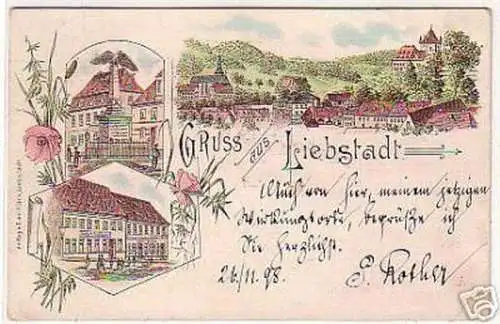 Gruss aus Liebstadt
Auch von hier, meinem jetzigen
Wirkungsorte, begrüsse ich
Sie herzlichst.
26/11.98. P. Rother